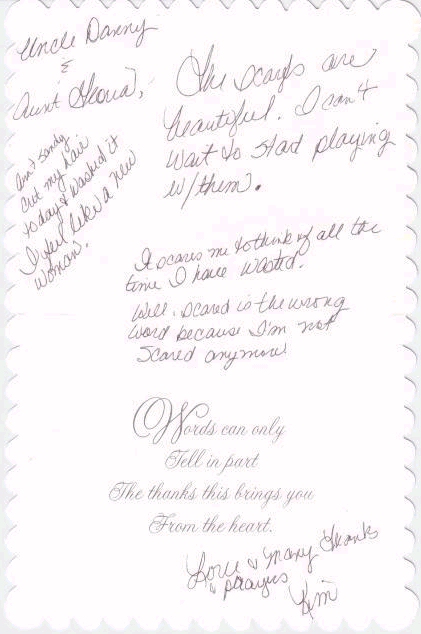 Uncle Danny
&
Aunt Gloria,
The scarfs are
beautiful. I can't
wait to start playing
w/them.
Aunt Sandy
cut my hair
today & washed it
I feel like a new
woman.
It scares me to think of all the
time I have wasted.
Well, scared is the wrong
word because I'm not
scared anymore.
Words can only
Tell in part
The thanks this brings you
From the heart.
Love & Many Thanks
& prayers
Kim